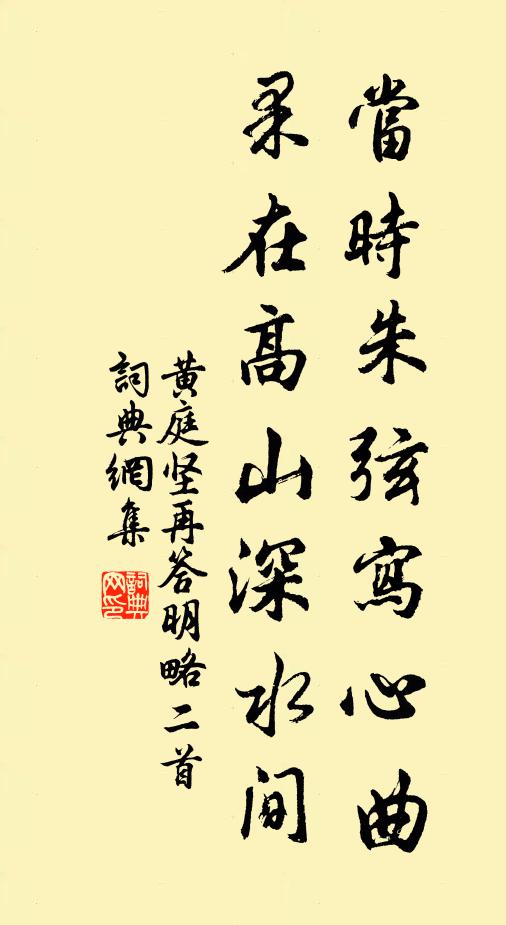 當時朱弦寫心曲
果在高山深水间
黄庭坚再答明略二首
詞典網集
詞典網印